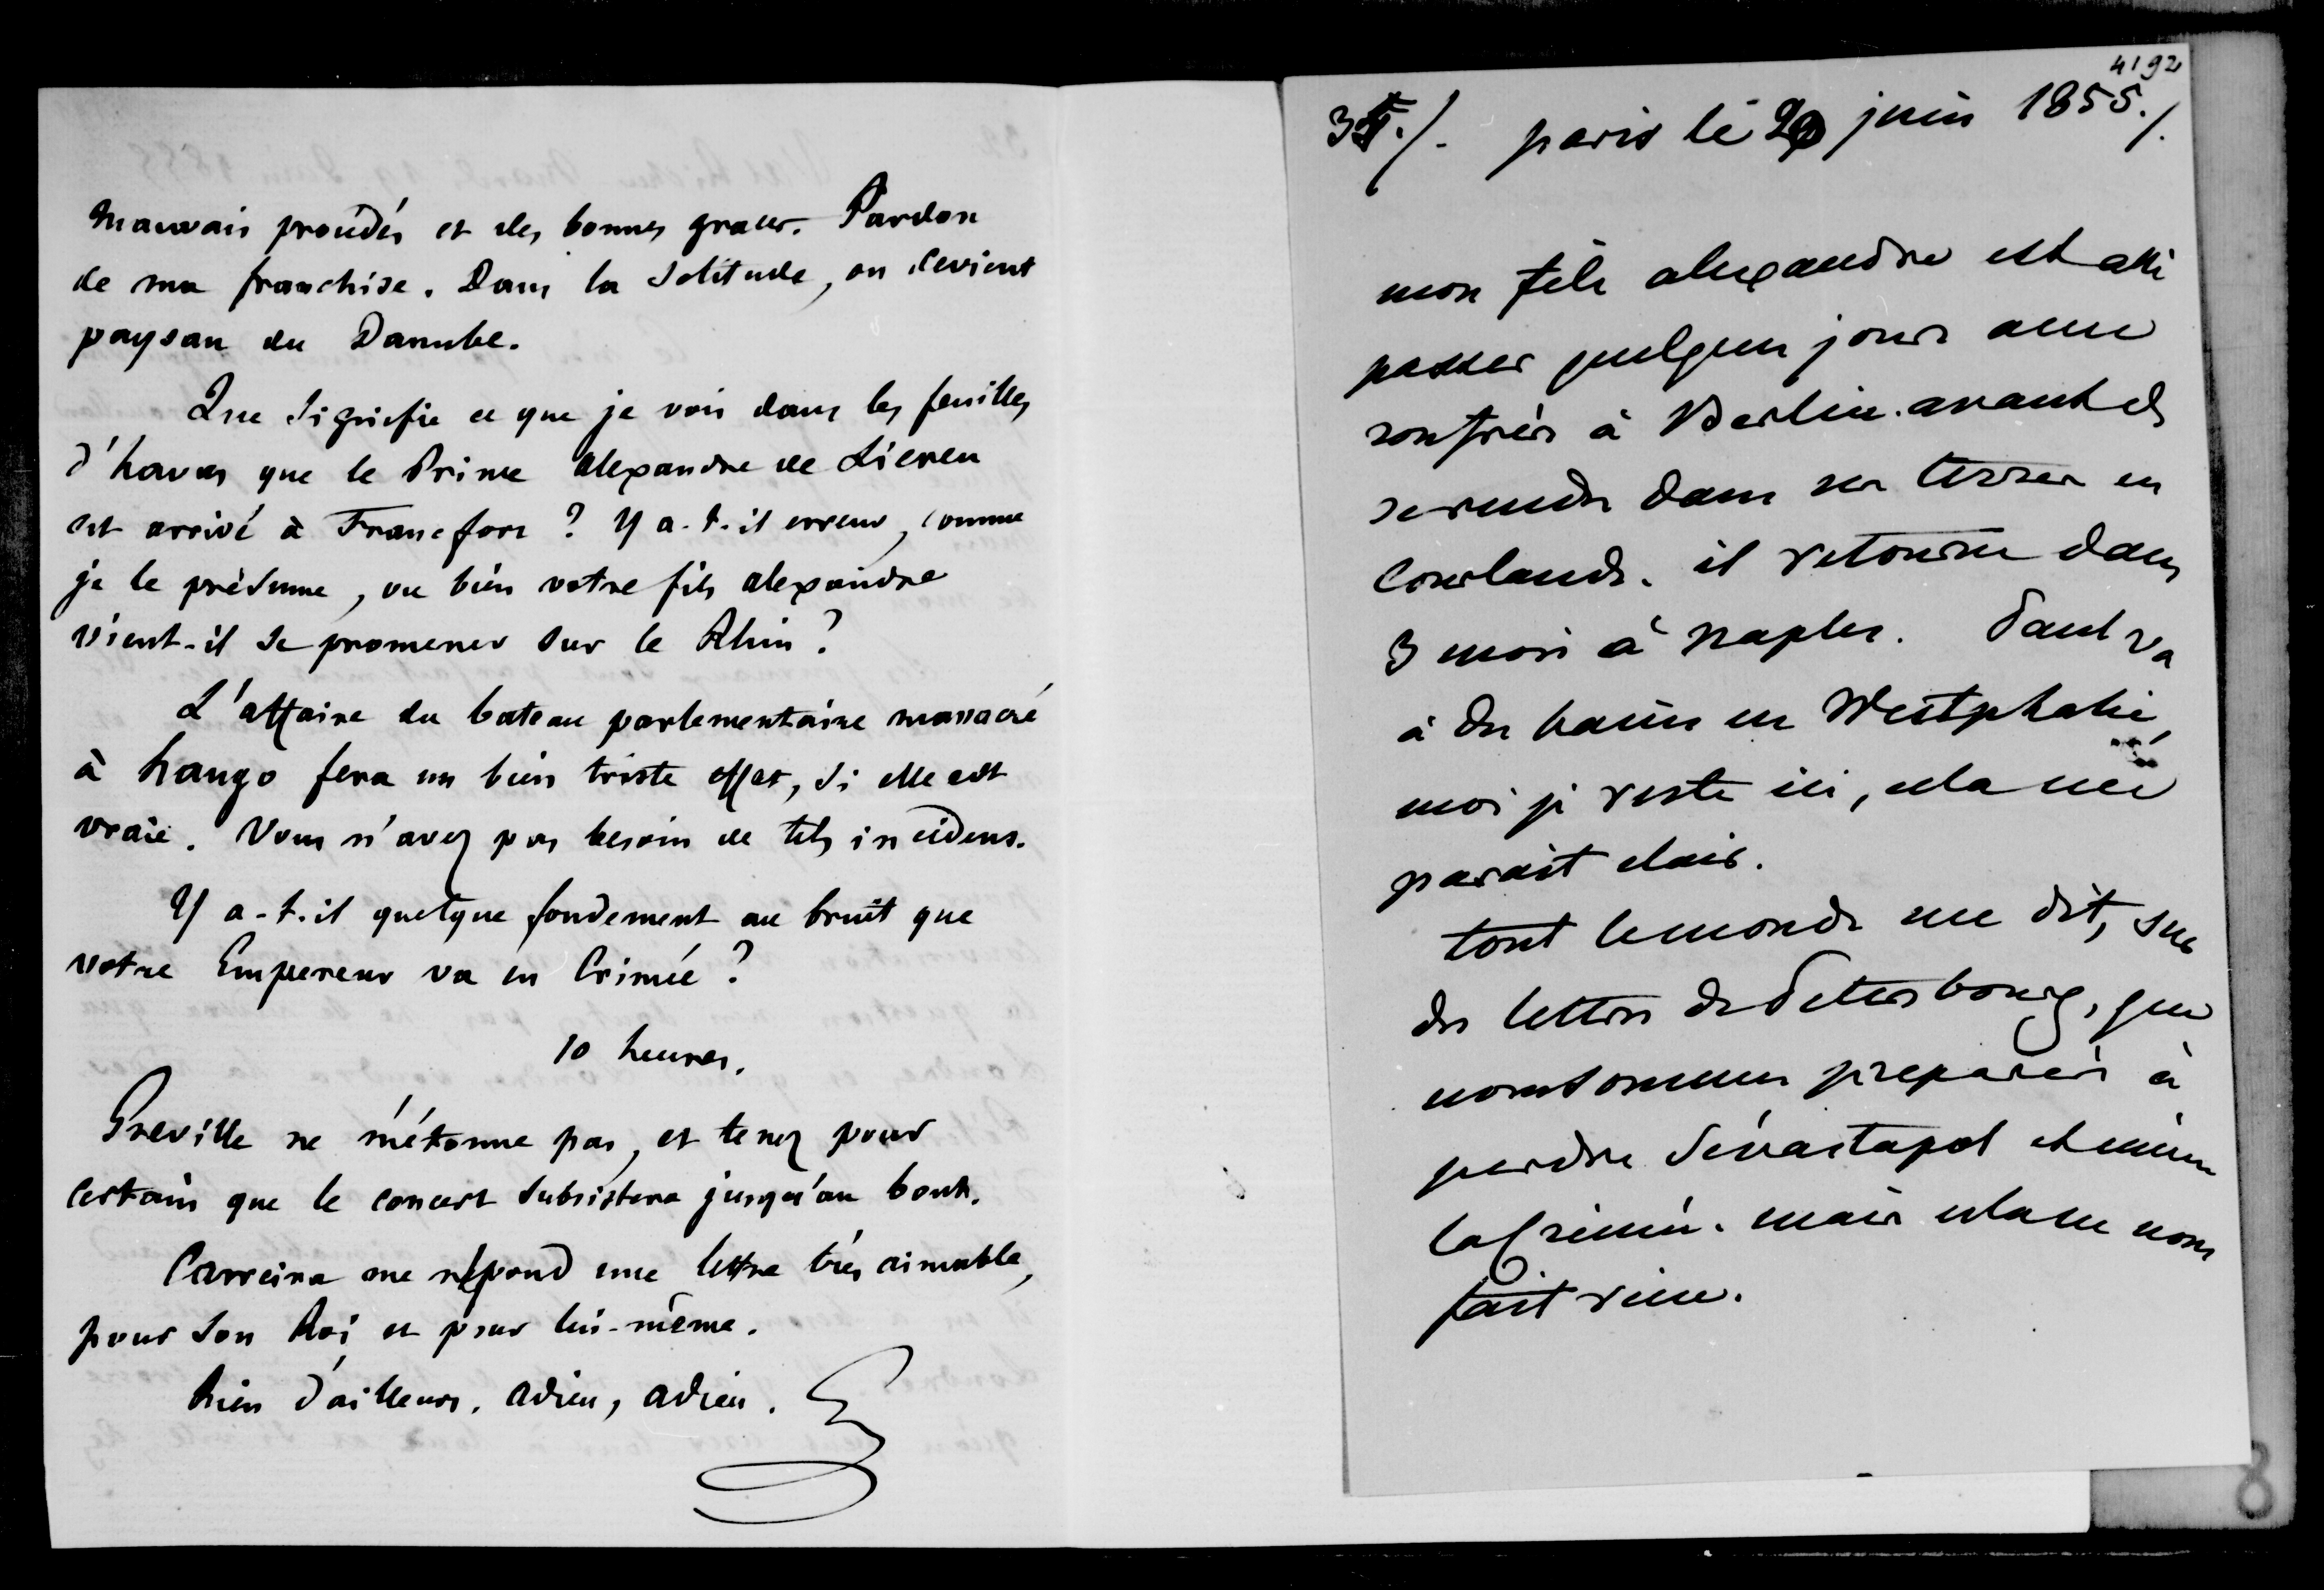 mauvais procédés et des bonnes graces. Pardon
de ma franchise. Dans la solitude, on devient
paysan du Danube.
Que signifie ce que je vois dans les feuilles
d'havas que le Prince Alexandre de Lieven
est arrivé à Francfort ? Y a-t-il erreur, comme
je le présume, ou bien votre fils Alexandre
vient-il se promener sur le Rhin ?
L'affaire du bateau parlementaire massacré
à hango fera un bien triste effet, si elle est
vraie. Vous n'avez pas besoin de tels incidens.
Y a-t-il quelque fondement au bruit que
votre Empereur va en Crimée ?
10 heures.
Greville ne m'étonne pas, et tenez pour
certain que le concert subsistera jusqu'au bout.
Carreira me répond une lettre très aimable,
pour son Roi et pour lui-même.
Rien d'ailleurs. Adieu, adieu.
4192
paris le 20 juin 1855./.
mon fils alexandre est allé
passer quelques jours avec
son frère à Berlin. avant de
se rendre dans ses terres en
Courlande. il retourne dans
3 mois à Naples. Paul va
à des bains en Westphalie,
moi je reste ici, cela me
parait clair.
tout le monde me dit, sur
des lettres de Petersbourg, que
nous sommes preparés à
perdre Sévastapol et même
la Crimée. mais cela ne nous
fait rien.